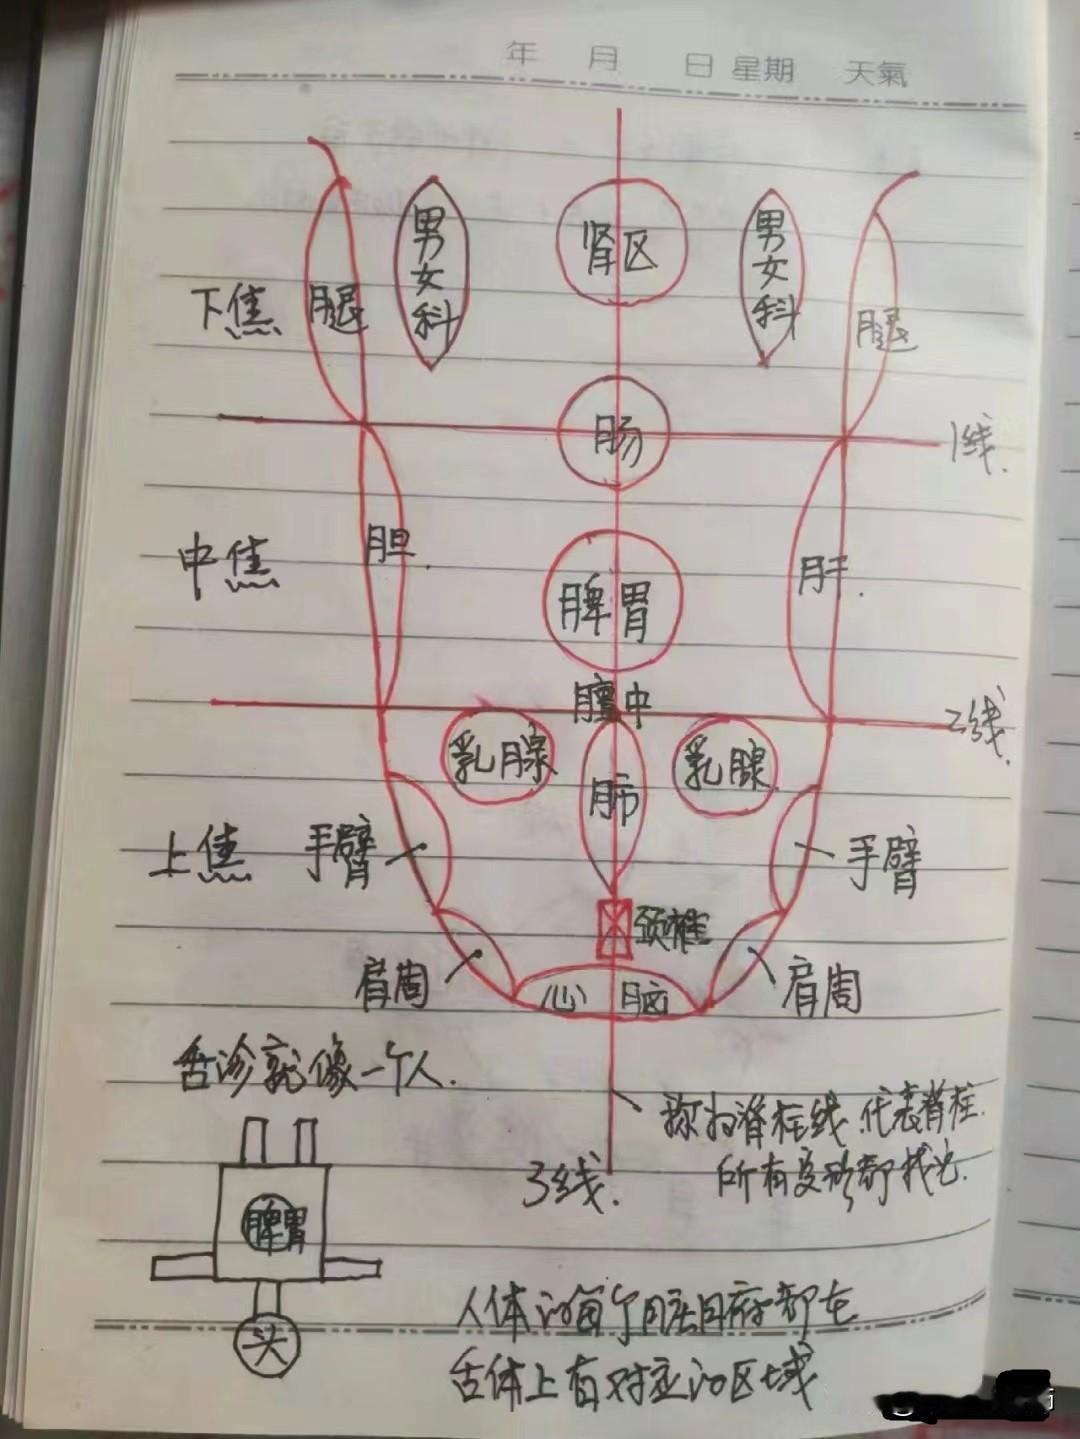 年 月 日 星期 天氣
男女科 肾区 男女科
下焦 腿 腿
肠 1线.
中焦 胆. 脾胃 肝.
膻中 2线.
乳腺 肺 乳腺
上焦 手臂 手臂
颈椎
肩周 心 脑 肩周
舌诊就像一个人.
称为脊柱线.代表脊柱.
3线. 所有变形都找它.
脾胃
头
人体的每个脏腑都在
舌体上有对应的区域